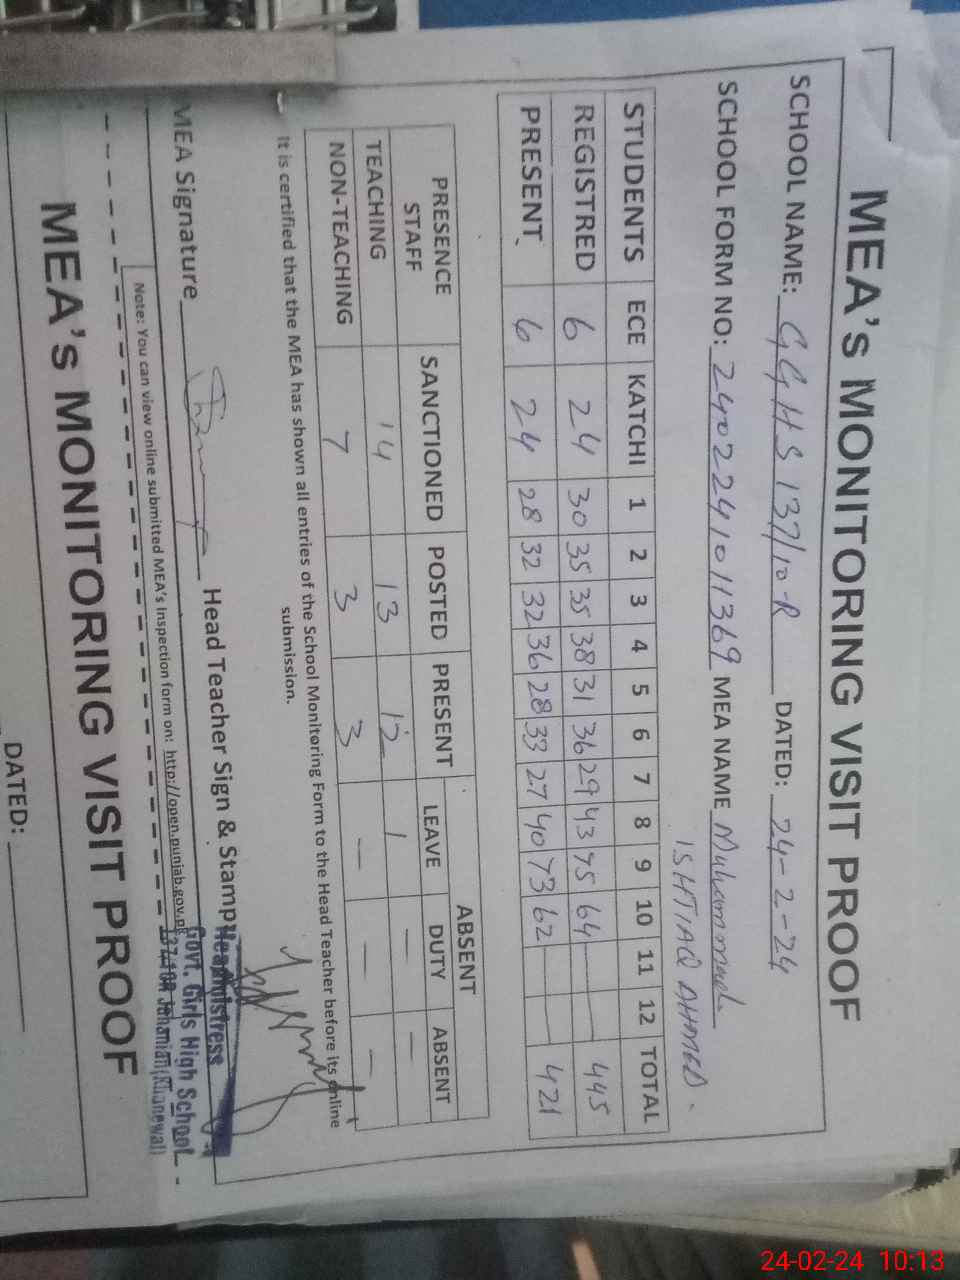 MEA's MONITORING VISIT PROOF
SCHOOL NAME: GGHS 137/10-R DATED: 24-2-24
SCHOOL FORM NO: 2402241011369 MEA NAME Muhammad
ISHTIAQ AHMED.
STUDENTS ECE KATCHI 1 2 3 4 5 6 7 8 9 10 11 12 TOTAL
REGISTRED 6 24 30 35 35 38 31 36 29 43 75 64 445
PRESENT 6 24 28 32 32 36 28 33 27 40 73 62 421
PRESENCE STAFF SANCTIONED POSTED PRESENT ABSENT
LEAVE DUTY ABSENT
TEACHING 14 13 12 1 — —
NON-TEACHING 7 3 3 — — —
It is certified that the MEA has shown all entries of the School Monitoring Form to the Head Teacher before its online
submission.
MEA Signature Head Teacher Sign & Stamp
Headmistress
Govt. Girls High School
137/10R Jahanian (Khanewal)
Note: You can view online submitted MEA's Inspection form on: http://open.punjab.gov.pk
MEA's MONITORING VISIT PROOF
DATED:
24-02-24 10:13